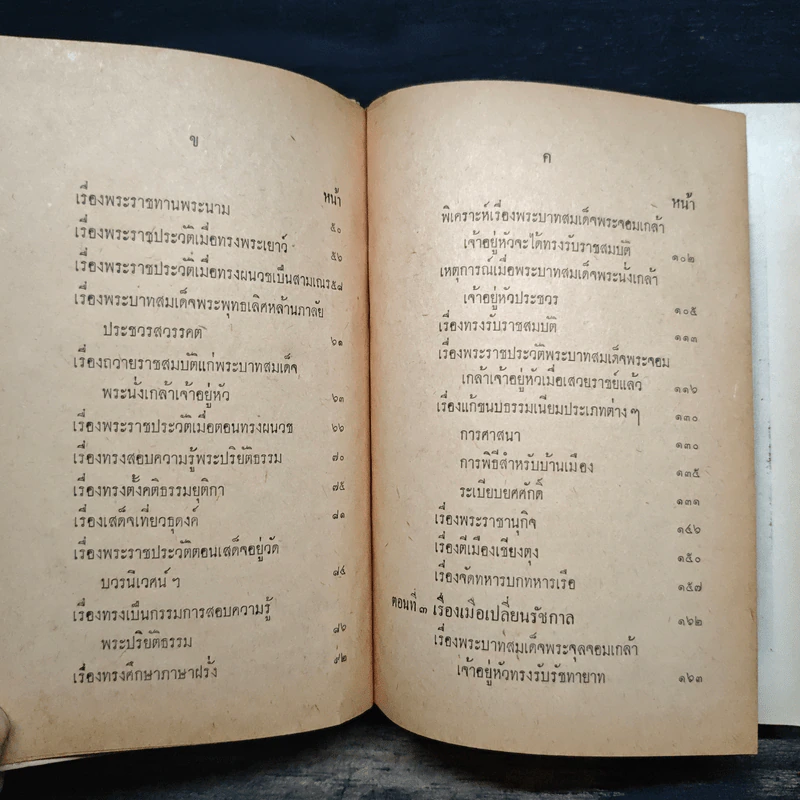 ข
หน้า
เรื่องพระราชทานพระนาม ๕๐
เรื่องพระราชประวัติเมื่อทรงพระเยาว์ ๕๖
เรื่องพระราชประวัติเมื่อทรงผนวชเป็นสามเณร ๕๘
เรื่องพระบาทสมเด็จพระพุทธเลิศหล้านภาลัย
ประชวรสวรรคต ๖๑
เรื่องถวายราชสมบัติแก่พระบาทสมเด็จ
พระนั่งเกล้าเจ้าอยู่หัว ๖๓
เรื่องพระราชประวัติเมื่อตอนทรงผนวช ๖๖
เรื่องทรงสอบความรู้พระปริยัติธรรม ๗๐
เรื่องทรงตั้งคติธรรมยุติกา ๗๕
เรื่องเสด็จเที่ยวธุดงค์ ๘๑
เรื่องพระราชประวัติตอนเสด็จอยู่วัด
บวรนิเวศน์ ฯ ๘๔
เรื่องทรงเป็นกรรมการสอบความรู้
พระปริยัติธรรม ๘๖
เรื่องทรงศึกษาภาษาฝรั่ง ๙๒
ค
หน้า
พิเคราะห์เรื่องพระบาทสมเด็จพระจอมเกล้า
เจ้าอยู่หัวจะได้ทรงรับราชสมบัติ ๑๐๒
เหตุการณ์เมื่อพระบาทสมเด็จพระนั่งเกล้า
เจ้าอยู่หัวประชวร ๑๐๕
เรื่องทรงรับราชสมบัติ ๑๑๓
เรื่องพระราชประวัติพระบาทสมเด็จพระจอม
เกล้าเจ้าอยู่หัวเมื่อเสวยราชย์แล้ว ๑๑๖
เรื่องแก้ขนบธรรมเนียมประเภทต่าง ๆ ๑๓๐
การศาสนา ๑๓๐
การพิธีสำหรับบ้านเมือง ๑๓๕
ระเบียบยศศักดิ์ ๑๓๑
เรื่องพระราชานุกิจ ๑๔๖
เรื่องตีเมืองเชียงตุง ๑๕๐
เรื่องจัดทหารบกทหารเรือ ๑๕๗
ตอนที่ ๓ เรื่องเมื่อเปลี่ยนรัชกาล ๑๖๒
เรื่องพระบาทสมเด็จพระจุลจอมเกล้า
เจ้าอยู่หัวทรงรับรัชทายาท ๑๖๓